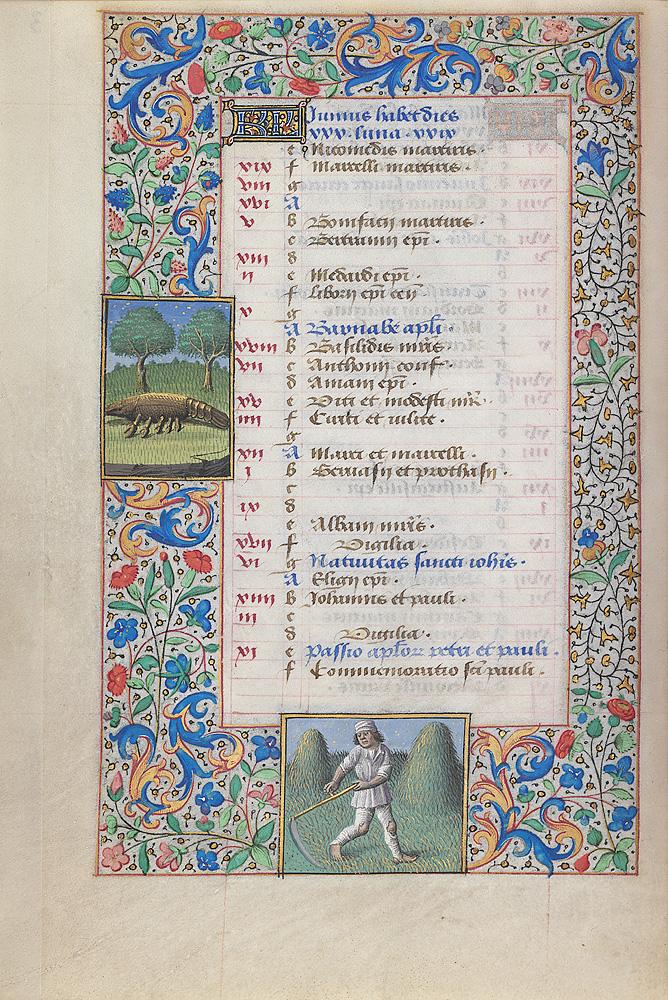 KL Junius habet dies
xxx. luna. xxix
e Nicomedis martiris.
xix f Marcelli martiris.
viii g
xvi A
v b Bonifacii martiris.
c
xiii d
ii e Medardi epi.
f Liborii epi
x g
A Barnabe apli.
xviii b Basilidis mris
vii c Anthonii conf.
d Aniani epi.
xv e Viti et modesti mr.
iiii f Cirici et iulite.
g
xii A Marci et marcelli.
i b Gervasii et prothasii
c
ix d
e Albani mris.
xvii f Vigilia
vi g Nativitas sancti iohis.
A Eligii epi.
xiiii b Johannis et pauli.
iii c
d Vigilia.
xi e Passio aplor petri et pauli.
f Commemoratio sci pauli.